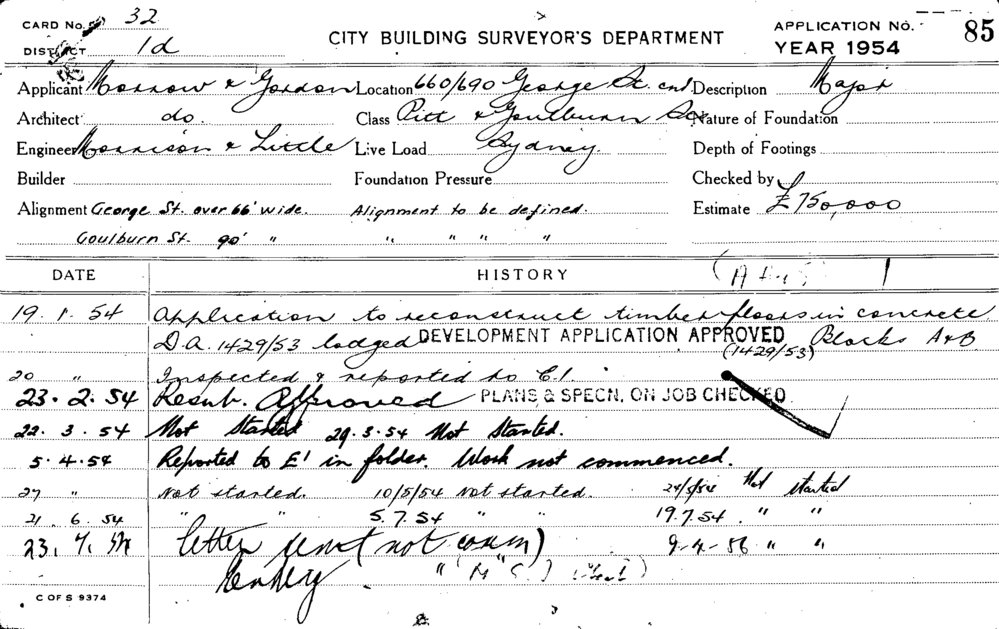 CARD No. 32
DISTRICT 1d
CITY BUILDING SURVEYOR'S DEPARTMENT
APPLICATION No. 85
YEAR 1954
Applicant Morrow & Gordon Location 660/690 George St. and Description Major
Architect do. Class Pitt & Goulburn Sts Nature of Foundation
Engineer Morrison & Little Live Load Sydney. Depth of Footings
Builder Foundation Pressure Checked by
Alignment George St. over 66' wide. Alignment to be defined. Estimate £750,000
Goulburn St. 90' " " " " "
DATE HISTORY
19.1.54 Application to reconstruct timber floors in concrete
D.A. 1429/53 lodged DEVELOPMENT APPLICATION APPROVED Blocks A&B
(1429/53)
20 " Inspected & reported to C.I.
23.2.54 Resub. Approved PLANS & SPECN. ON JOB CHECKED
22.3.54 Not Started 29.3.54 Not Started.
5.4.54 Reported to E' in folder. Work not commenced.
27 " Not started. 10/5/54 Not started. 24/5/54 Not started
21.6.54 " " 5.7.54 " " 19.7.54. " "
23.7.54 letter sent (not comm) 9-4-56 " "
C OF S 9374